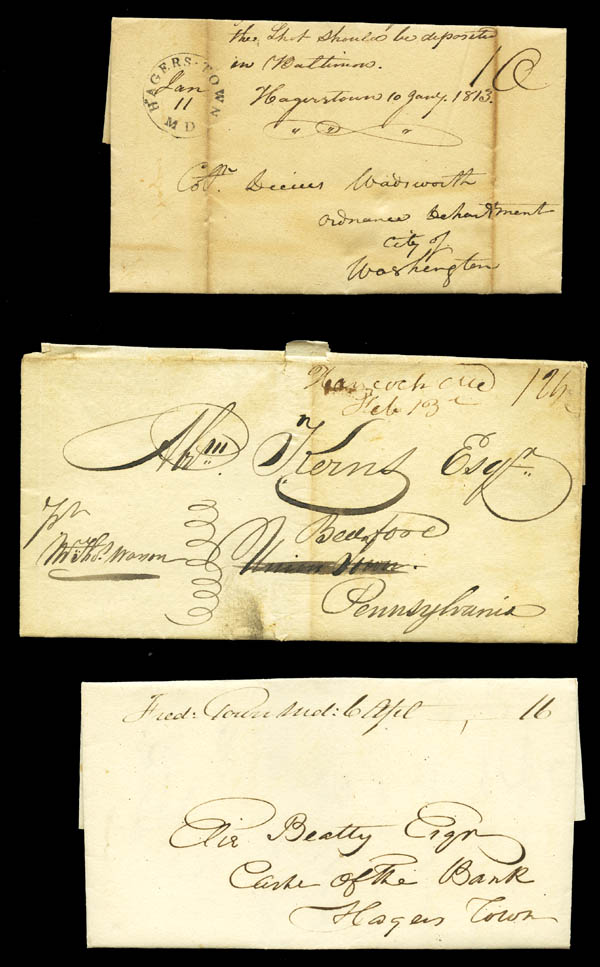 the Shot should be deposited
in Baltimore.
Hagerstown 10 Jany. 1813.
10
HAGERS-TOWN
Jan
11
MD
Coln. Decius Wadsworth
Ordnance Department
City of
Washington
Hancock Md
Feb 13
12½
Abm Kerns Esqr.
Bedford
Union Town.
Pennsylvania
Fred: Town Md: 6 Apl
16
Elie Beatty Esqr
Cashr of the Bank
Hagers Town